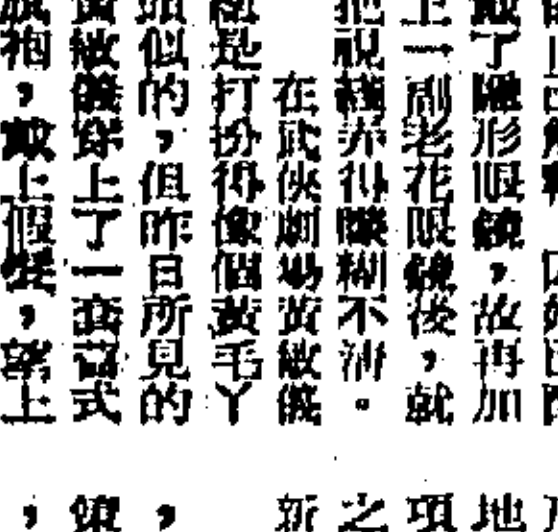 戴了隱形眼鏡，故再加
上一副老花眼鏡後，就
把視綫弄得矇糊不清。
在武俠劇場黃敏儀
總是打扮得像個黃毛丫
頭似的，但昨日所見的
黃敏儀穿上了一套舊式
旗袍，戴上假髮，望上
地
項
之
新
，
，